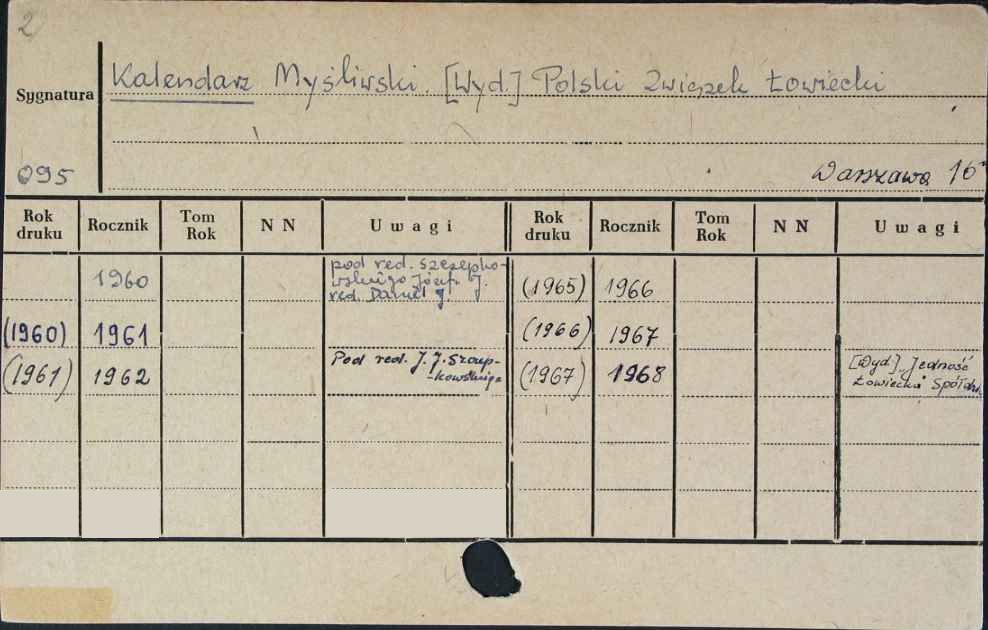 2
Kalendarz Myśliwski. [Wyd.] Polski Związek Łowiecki
Sygnatura
095
Warszawa 16°
Rok druku Rocznik Tom Rok N N Uwagi Rok druku Rocznik Tom Rok N N Uwagi
1960 pod red. Szczepko-
wskiego Józef. J.
red. Daniel J.
(1965) 1966
(1960) 1961
(1966) 1967
(1961) 1962 Pod red. J. J. Szczep-
-kowskiego
(1967) 1968 [Wyd.] "Jedność
Łowiecka" Spółdz.